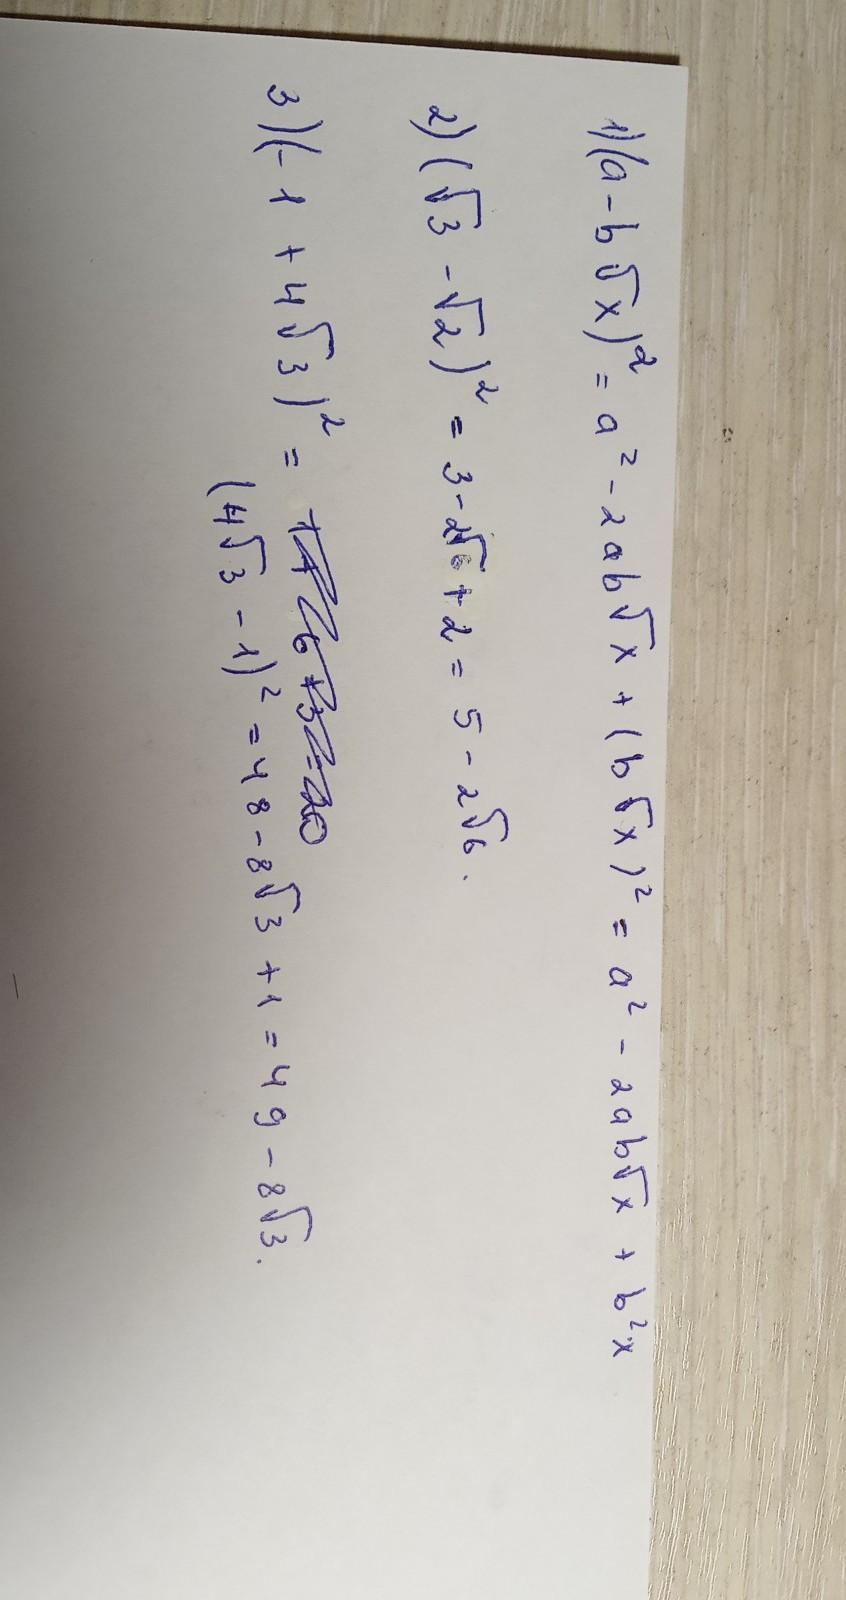 1) (a - b√x)² = a² - 2ab√x + (b√x)² = a² - 2ab√x + b²x
2) (√3 - √2)² = 3 - 2√6 + 2 = 5 - 2√6.
3) (-1 + 4√3)² =
(4√3 - 1)² = 48 - 8√3 + 1 = 49 - 8√3.